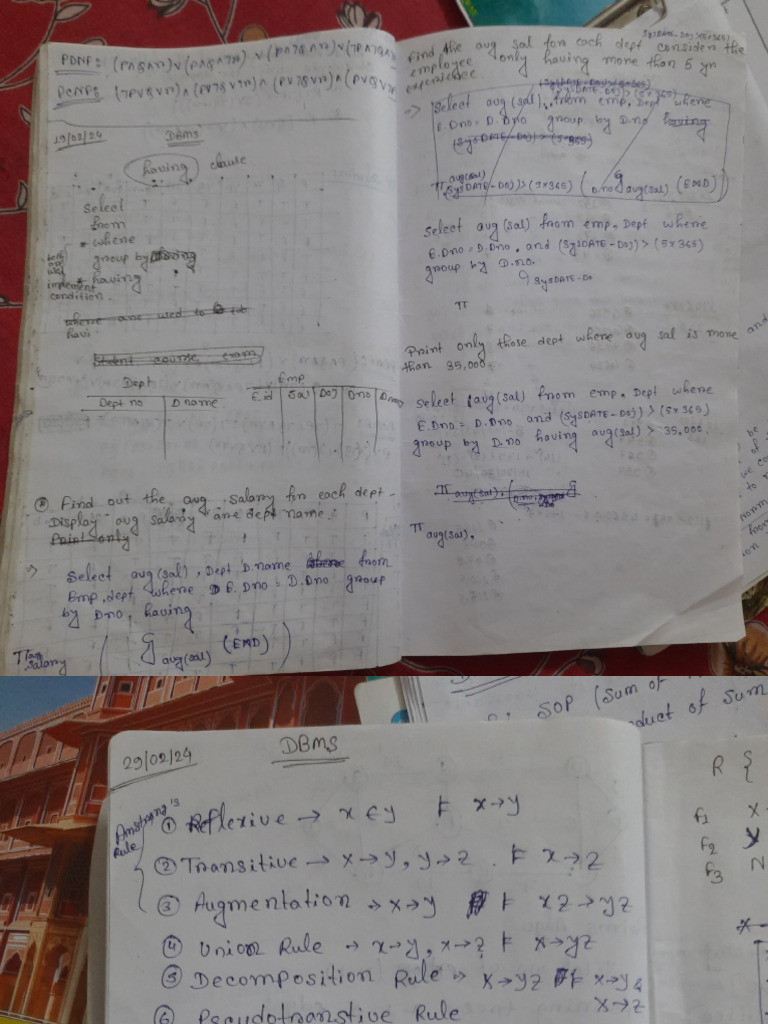 PDNF: (P∧Q∧R)∨(P∧Q∧7R) ∨ (P∧7Q∧R)∨(7P∧7Q∧
PCNF: (7PVQVR)∧(PV7QVR)∧(PVQVR)∧(PVQV7R
19/02/24 DBMS
having clause
Select
from
* where
group by
* having
implement
condition.
where are used to
havi
Student course exam
Dept
Dept no D name
Emp
E.id Sal DOJ Dno Dname
Find out the avg salary for each dept-
Display avg salary are dept name.
Print only
⇒ Select avg(sal), Dept D.name where from
Emp, dept where E.Dno = D.Dno group
by Dno, having
π avg salary ( G avg(sal) (EMD) )
SYSDATE-DOJ>(5×365)
Find the avg sal for each dept consider the
employee only having more than 5 yr
experience.
⇒ Select avg(sal), from emp, Dept where
E.Dno = D.Dno group by D.no having
(SYSDATE-DOJ)>(5×365)
π avg(sal) (SYSDATE-DOJ)>(5×365) ( D.no G avg(sal) (EMD)
Select avg(sal) from emp, Dept where
E.Dno = D.Dno. and (SYSDATE-DOJ) > (5×365)
group by D.no.
G SYSDATE-DO
π
Print only those dept where avg sal is more
than 35,000.
Select avg(sal) from emp, Dept where
E.Dno = D.Dno and (SYSDATE-DOJ) > (5×365)
group by D.no having avg(sal) > 35,000.
π avg(sal), (
π avg(sal).
SOP (Sum of
duct of Sum
29/02/24 DBMS
Amstrong's
Rule
① Reflexive → x ∈ y ⊧ x→y
② Transitive → x→y, y→z. ⊧ x→z
③ Augmentation → x→y ⊧ xz→yz
④ Union Rule → x→y, x→z ⊧ x→yz
⑤ Decomposition Rule → x→yz ⊧ x→y &
x→z
⑥ Pseudotranstive Rule
R {
F1 X
F2 Y
F3 N